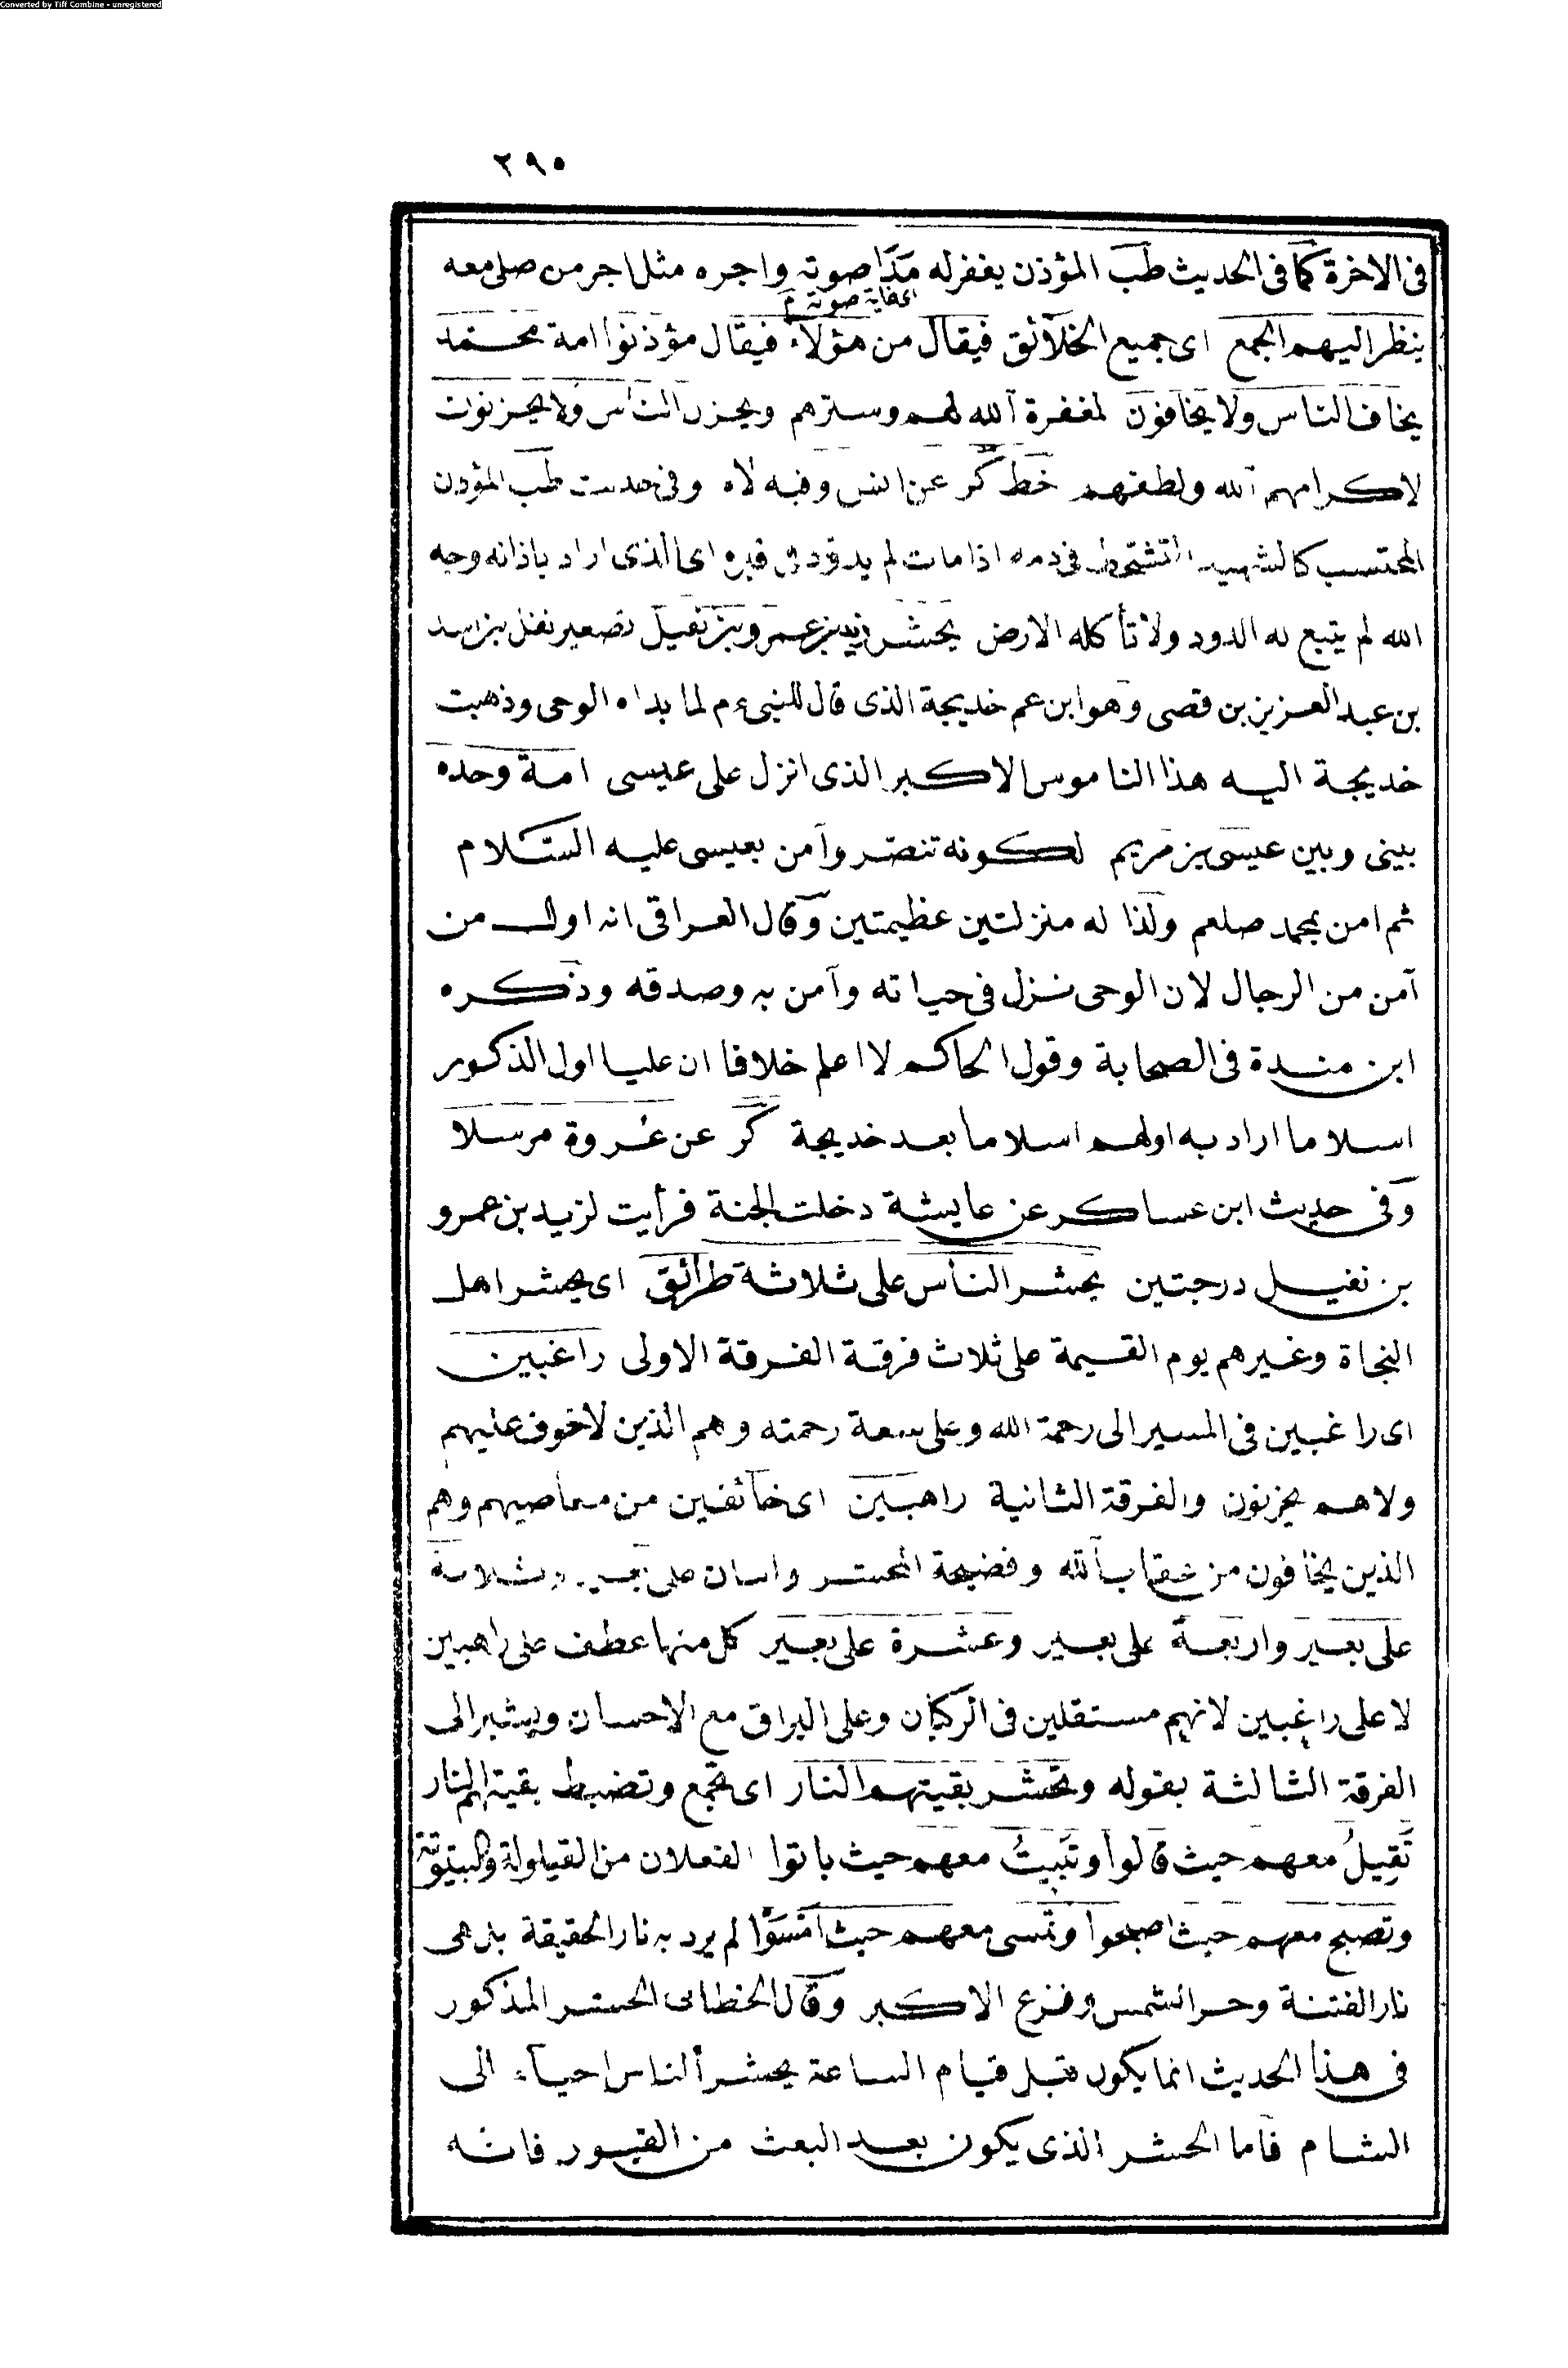 Converted by Tiff Combine - unregistered
٢٩٥
فى الاخرة كما فى الحديث طب المؤذن يغفرله مدا صوته واجره مثل اجر من صلى معه
اى غاية صوته م
ينظر اليهم الجمع اى جميع الخلائق فيقال من هؤلاء فيقال مؤذنوا امة محمد
يخاف الناس ولا يخافون لمغفرة الله لهم وسترهم ويحزن الناس ولا يحزنون
لاكرامهم الله ولطفهم خط كر عن انس وفيه لاه وفى حديث طب المؤذن
المحتسب كالشهيد المتشحط فى دمه اذا مات لم يدود فى قبره اى الذى اراد باذانه وجه
الله لم يتبع له الدود ولا تأكله الارض يحشر زيد بن عمرو بن نفيل تصغير نفل بن اسد
بن عبد العزيز بن قصى وهو ابن عم خديجة الذى قال للنبىء م لما بداه الوحى وذهبت
خديجة اليه هذا الناموس الاكبر الذى انزل على عيسى امة وحده
بينى وبين عيسى بن مريم لكونه تنصر وآمن بعيسى عليه السلام
ثم امن بمحمد صلعم ولذا له منزلتين عظيمتين وقال العراقى انه اول من
آمن من الرجال لان الوحى نزل فى حياته وآمن به وصدقه وذكره
ابن مندة فى الصحابة وقول الحاكم لا اعلم خلافا ان عليا اول الذكور
اسلاما اراد به اولهم اسلاما بعد خديجة كر عن عروة مرسلا
وفى حديث ابن عساكر عن عايشة دخلت الجنة فرأيت لزيد بن عمرو
بن نفيل درجتين يحشر الناس على ثلاثة طرائق اى يحشر اهل
النجاة وغيرهم يوم القيمة على ثلاث فرقة الفرقة الاولى راغبين
اى راغبين فى المسير الى رحمة الله وعلى سعة رحمته وهم الذين لا خوف عليهم
ولاهم يحزنون والفرقة الثانية راهبين اى خائفين من معاصيهم وهم
الذين يخافون من عقاب الله وفضيحة المحشر واثنان على بعير وثلاثة
على بعير واربعة على بعير وعشرة على بعير كل منها عطف على راهبين
لا على راغبين لانهم مستقلين فى الركبان وعلى البراق مع الاحسان ويشير الى
الفرقة الثالثة بقوله وتحشر بقيتهم النار اى تجمع وتضبط بقيتهم النار
تَقِيلُ معهم حيث قالوا وتَبِيتُ معهم حيث باتوا الفعلان من القيلولة والبيتوتة
وتصبح معهم حيث اصبحوا وتمسى معهم حيث امْسَوْا لم يرد به نار الحقيقة بل هى
نار الفتنة وحر الشمس وفزع الاكبر وقال الخطابى الحشر المذكور
فى هذا الحديث انما يكون قبل قيام الساعة يحشر الناس احياء الى
الشام فاما الحشر الذى يكون بعد البعث من القبور فانه